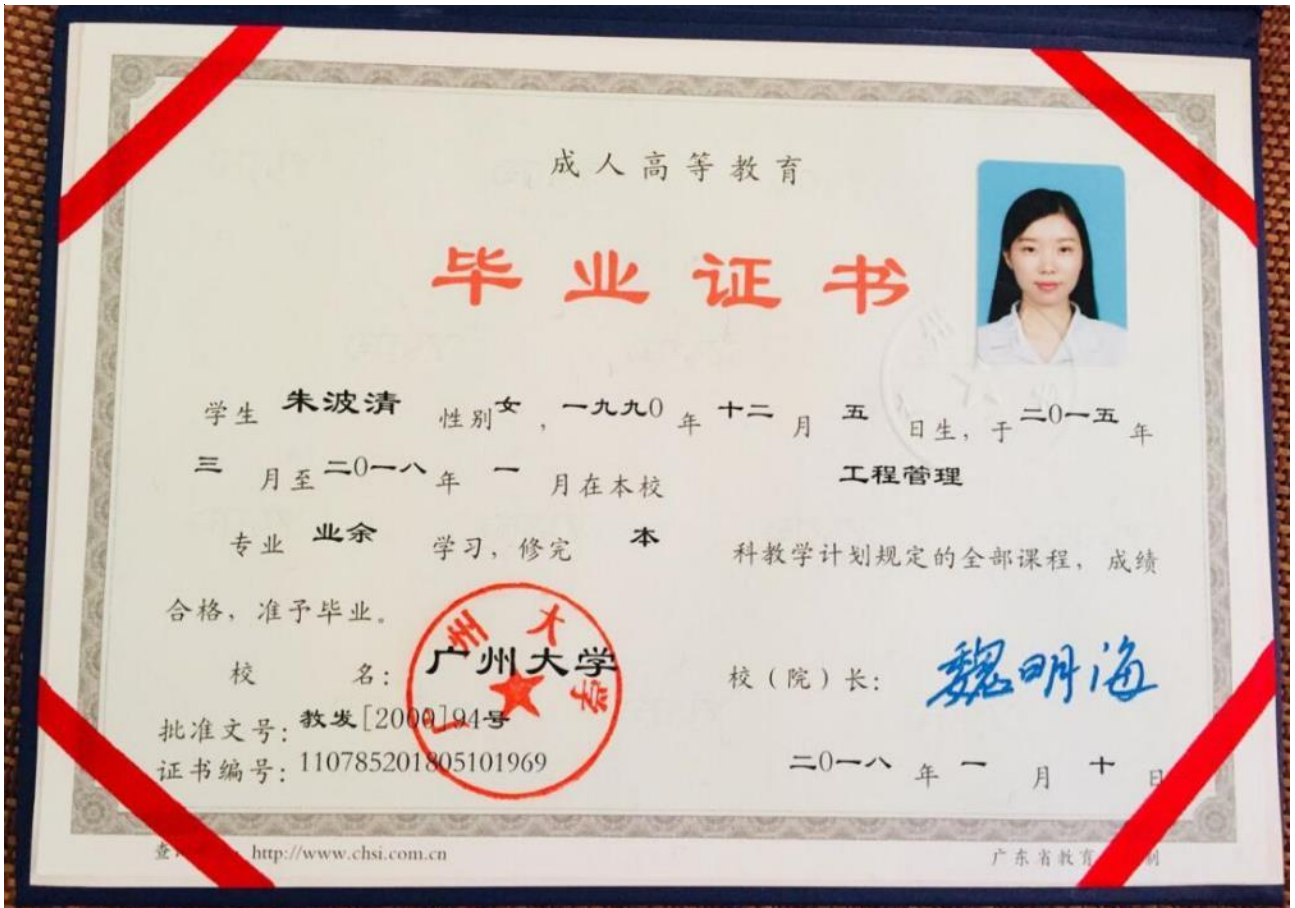 成人高等教育
毕业证书
学生 朱波清 性别 女 , 一九九0 年 十二 月 五 日生, 于 二0一五 年
三 月至 二0一八 年 一 月在本校 工程管理
专业 业余 学习, 修完 本 科教学计划规定的全部课程, 成绩
合格, 准予毕业。
校 名: 广州大学 校(院)长: 魏明海
批准文号: 教发[2000]94号
证书编号: 110785201805101969 二0一八 年 一 月 十 日
http://www.chsi.com.cn 广东省教育
广州大学